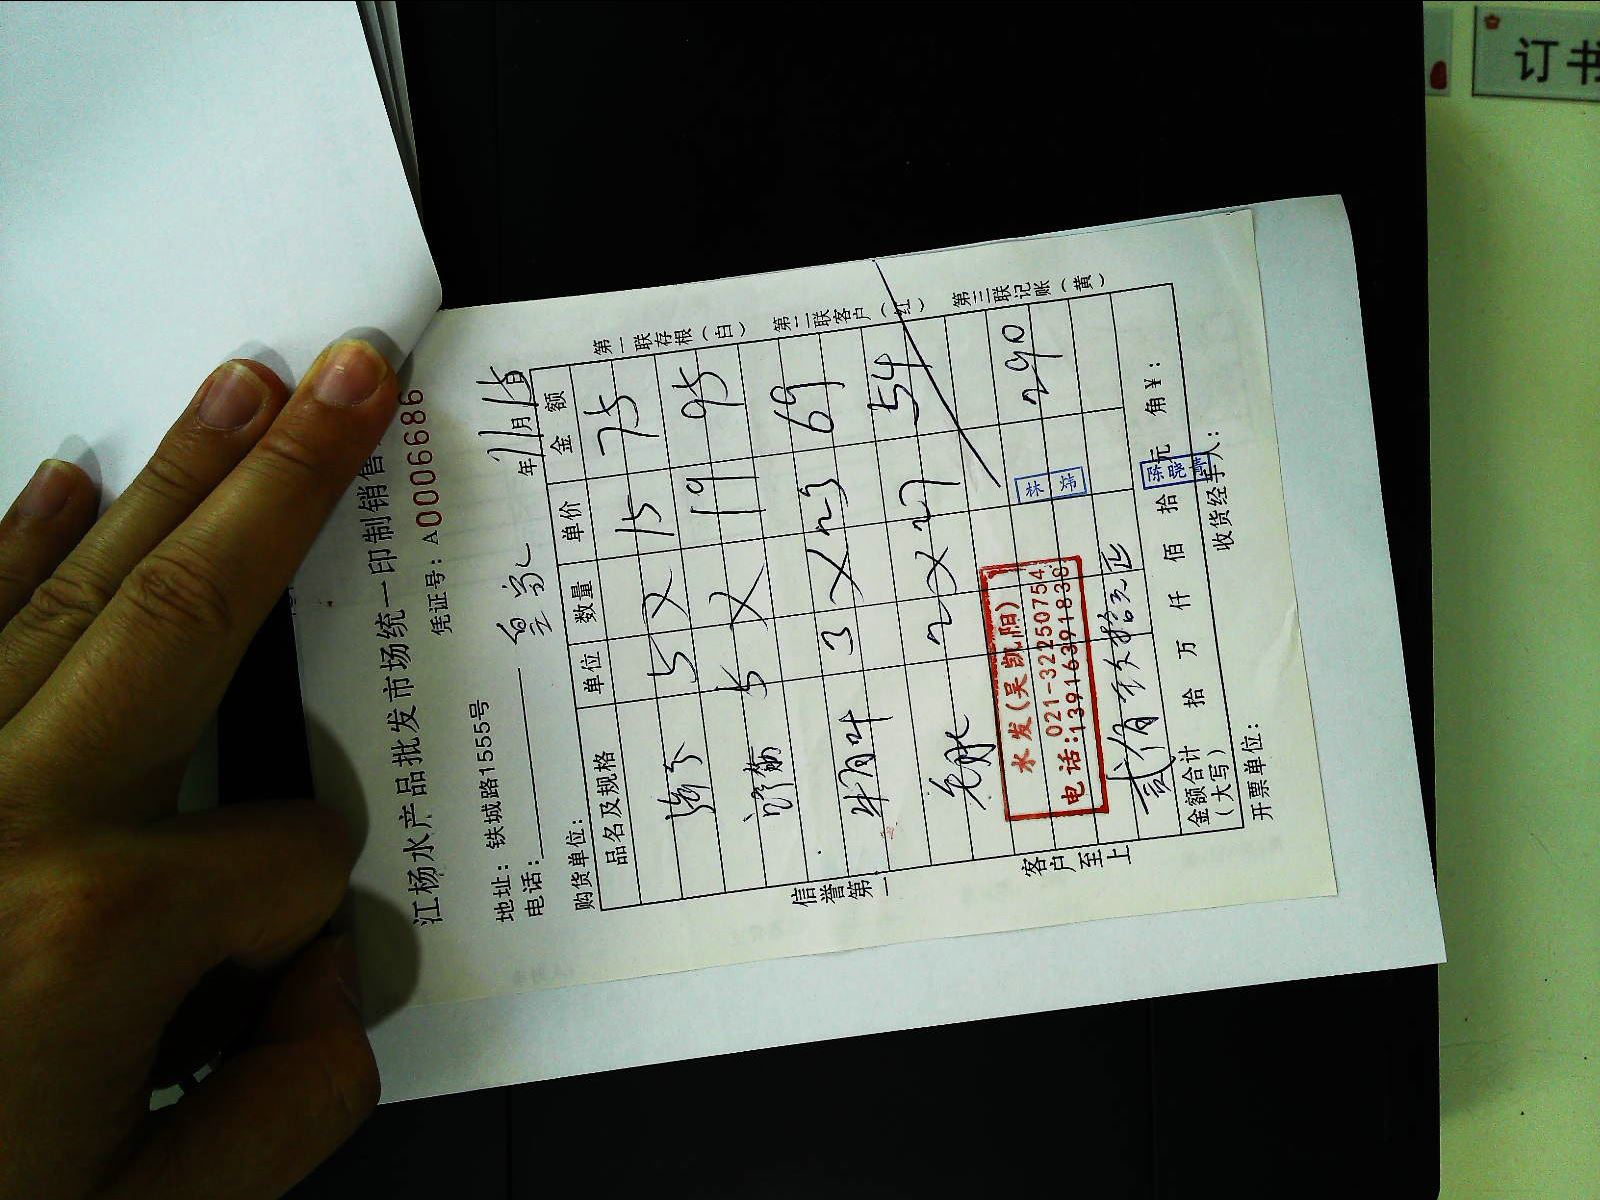 江杨水产品批发市场统一印制销售
凭证号: A0006686
地址: 铁城路1555号
电话:
年 11月15日
购货单位:
品名及规格 单位 数量 单价 金额
5 × 15 75
5 × 19 95
牛百叶 3 × 23 69
2 × 27 54
290
水发(吴凯阳)
021-32250754
电话:13916391838
林炜
贰佰玖拾元正
金额合计(大写) 拾 万 仟 佰 拾 元 角 ¥:
陈晓
开票单位: 收货经手人:
第一联存根(白) 第二联客户(红) 第三联记账(黄)
信誉第一 客户至上
订书